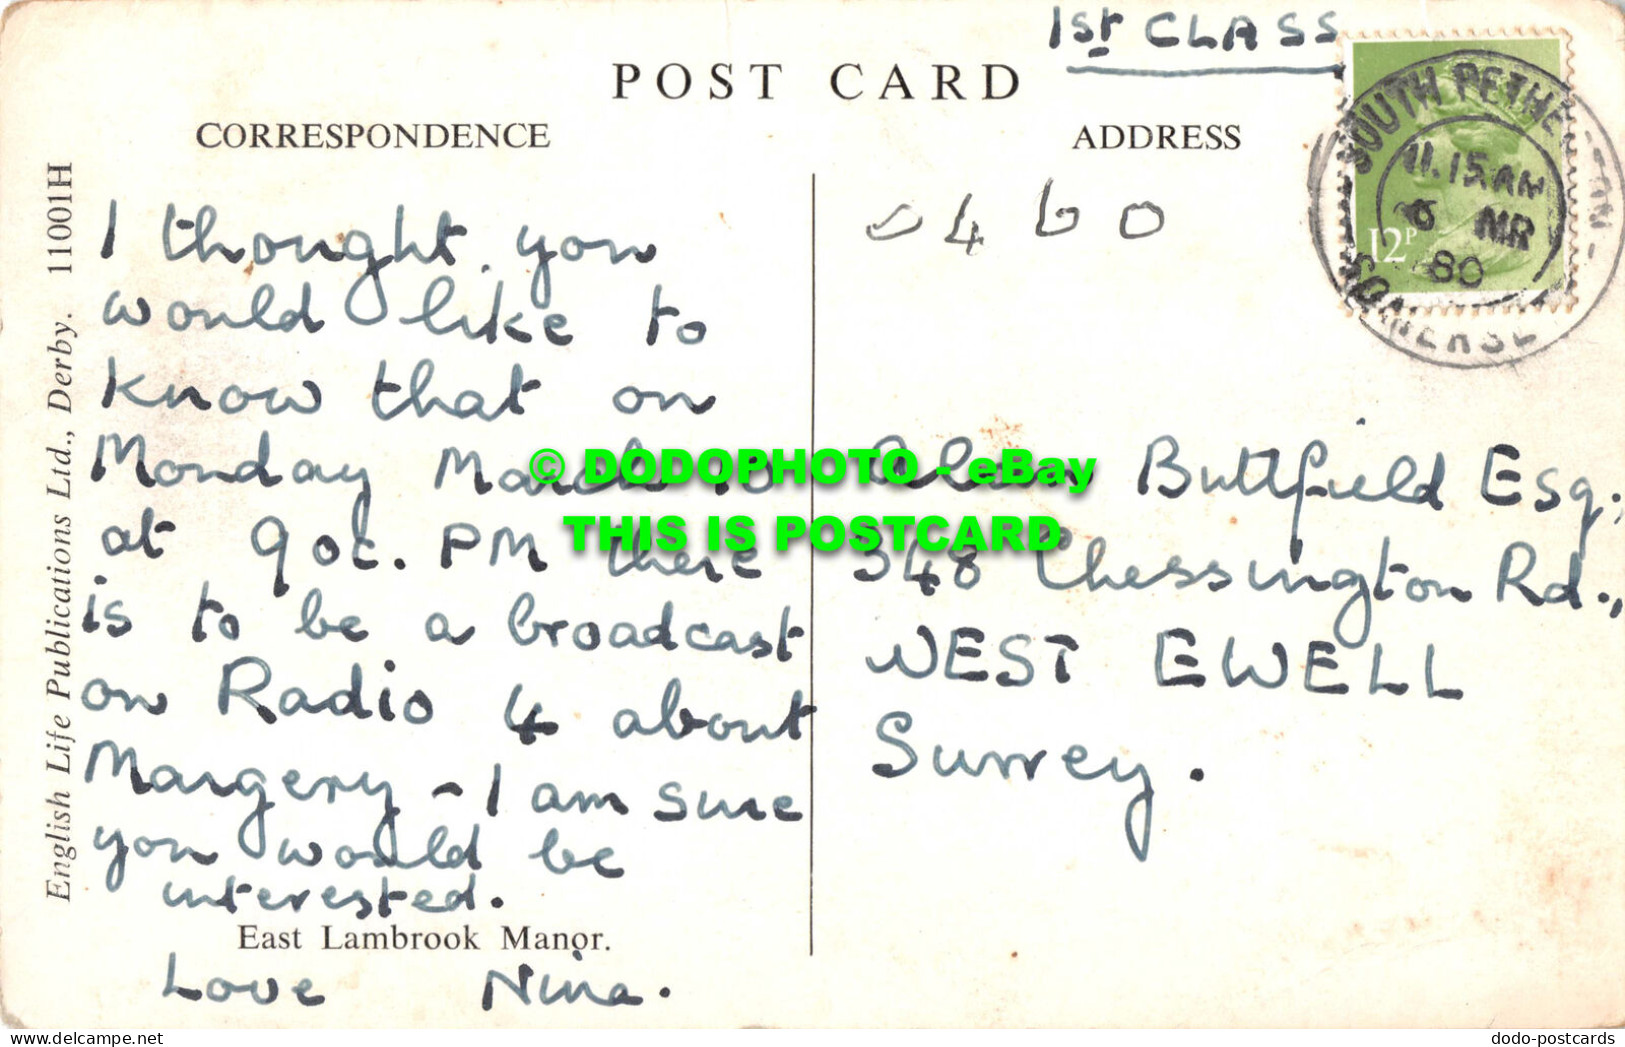 1st CLASS
POST CARD
CORRESPONDENCE
ADDRESS
SOUTH PETHE TON
11.15 AM
6 MR
80
SOMERSE
12P
0460
English Life Publications Ltd., Derby. 11001H
I thought you
would like to
know that on
Monday March 10
at 9 oc. PM there
is to be a broadcast
on Radio 4 about
Margery - I am sure
you would be
interested.
East Lambrook Manor.
Love Nina.
Alan Buttfield Esq;
348 Chessington Rd.,
WEST EWELL
Surrey.
© DODOPHOTO - eBay
THIS IS POSTCARD
www.delcampe.net
dodo-postcards